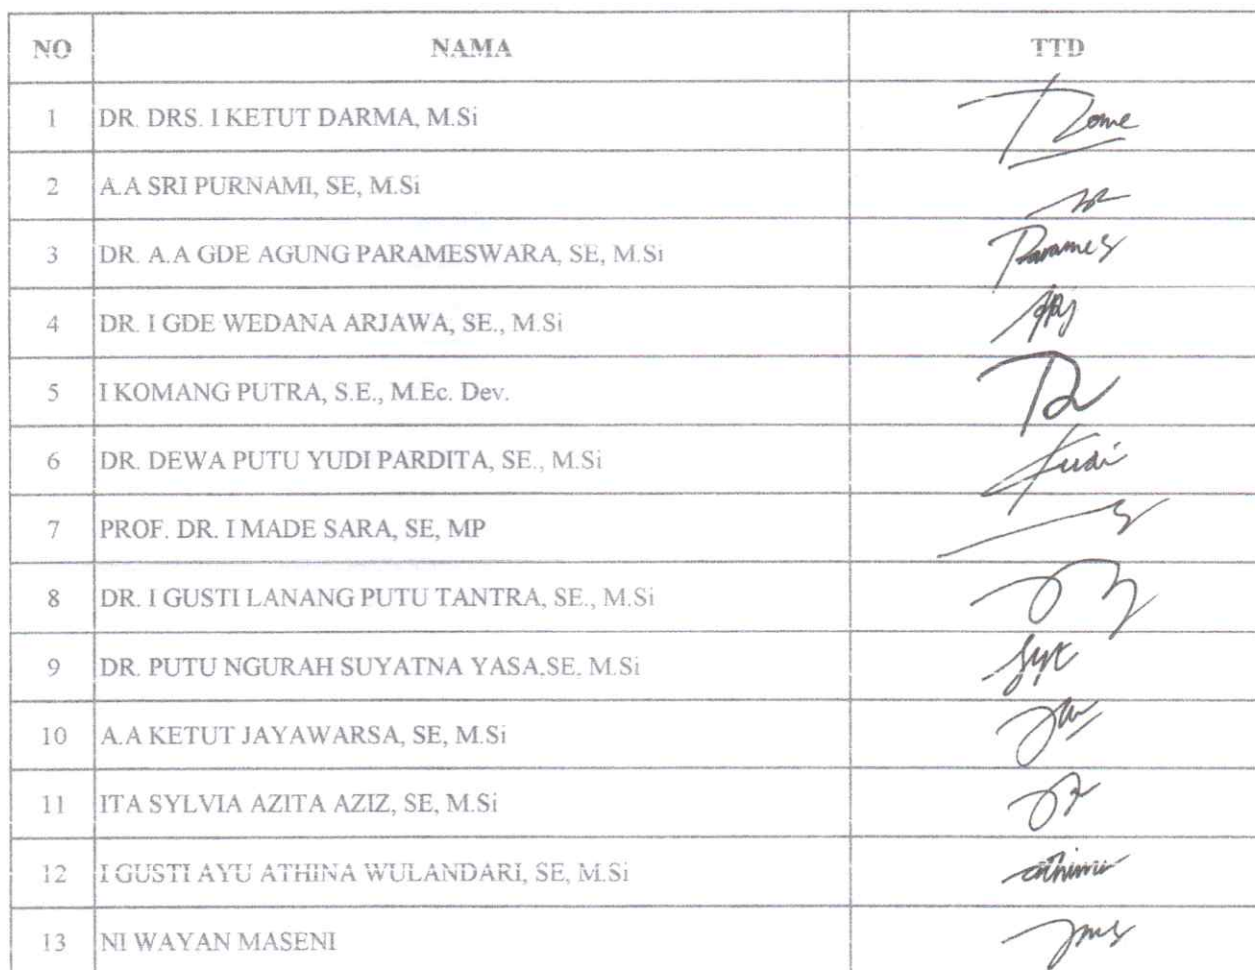 NO NAMA TTD
1 DR. DRS. I KETUT DARMA, M.Si
2 A.A SRI PURNAMI, SE, M.Si
3 DR. A.A GDE AGUNG PARAMESWARA, SE, M.Si Parames
4 DR. I GDE WEDANA ARJAWA, SE., M.Si
5 I KOMANG PUTRA, S.E., M.Ec. Dev.
6 DR. DEWA PUTU YUDI PARDITA, SE., M.Si Yudi
7 PROF. DR. I MADE SARA, SE, MP
8 DR. I GUSTI LANANG PUTU TANTRA, SE., M.Si
9 DR. PUTU NGURAH SUYATNA YASA,SE. M.Si
10 A.A KETUT JAYAWARSA, SE, M.Si
11 ITA SYLVIA AZITA AZIZ, SE, M.Si
12 I GUSTI AYU ATHINA WULANDARI, SE, M.Si
13 NI WAYAN MASENI